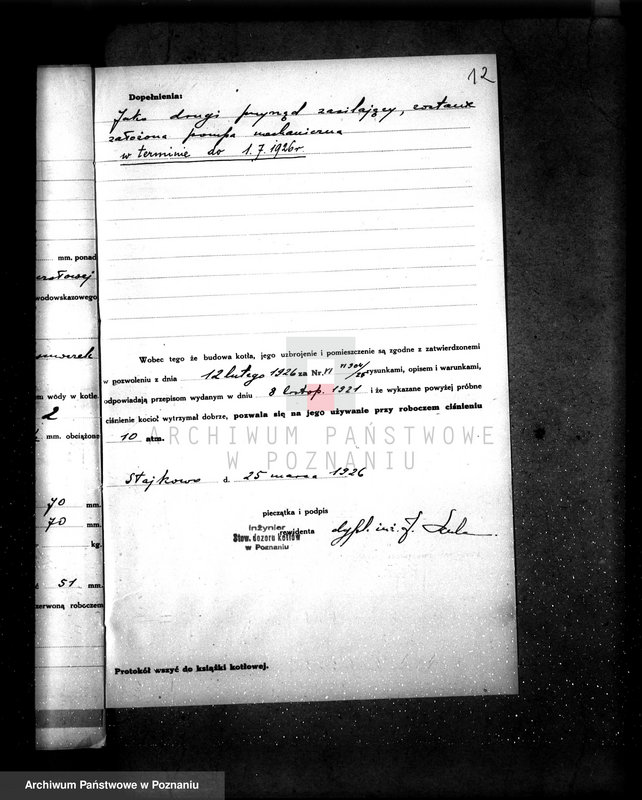 12
Dopełnienia:
Jako drugi przyrząd zasilający, zostanie
założona pompa mechaniczna
w terminie do 1.7.1926r
mm. ponad
wodowskazowego
m wody w kotle.
2
mm. obciążone
70 mm.
70 mm.
kg.
51 mm.
zerwoną roboczem
Wobec tego że budowa kotła, jego uzbrojenie i pomieszczenie są zgodne z zatwierdzonemi
w pozwoleniu z dnia 12 lutego 1926 za Nr. rysunkami, opisem i warunkami,
odpowiadają przepisom wydanym w dniu 8 listop. 1921 i że wykazane powyżej próbne
ciśnienie kocioł wytrzymał dobrze, pozwala się na jego używanie przy roboczem ciśnieniu
10 atm.
ARCHIWUM PAŃSTWOWE
W POZNANIU
Stajkowo d. 25 marca 1926
pieczątka i podpis
rewidenta
Inżynier
Stow. dozoru kotłów
w Poznaniu
dypl. inż.
Protokół wszyć do książki kotłowej.
Archiwum Państwowe w Poznaniu